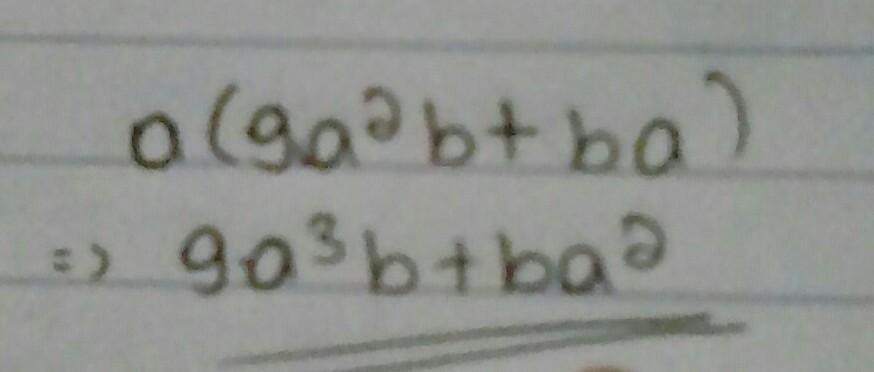 a(9a²b+ba)
=> 9a³b+ba²